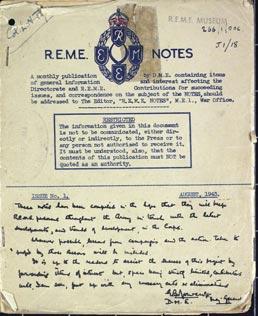 R.E.M.E. MUSEUM
R.E.M.E. NOTES
A monthly publication by D.M.E. containing items
of general information and interest affecting the
Directorate and R.E.M.E. Contributions for succeeding
issues, and correspondence on the subject of the NOTES, should
be addressed to the Editor, "R.E.M.E. NOTES", M.E.1., War Office.
RESTRICTED
The information given in this document
is not to be communicated, either dir-
ectly or indirectly, to the Press or to
any person not authorised to receive it.
It must be understood, also, that the
contents of this publication must NOT
be quoted as an authority.
ISSUE No. 1. AUGUST, 1943.
These notes have been compiled in the hope that they will keep
R.E.M.E. personnel throughout the Army in touch with the latest
developments, and trends of development, in the Corps.
Wherever possible lessons from campaigns and the action taken to
profit by those lessons will be included.
It is up to the readers to assist the success of this project by
forwarding items of interest but space being strictly limited, contributors
will, I am sure, put up with any necessary cuts or eliminations
D.M.E.